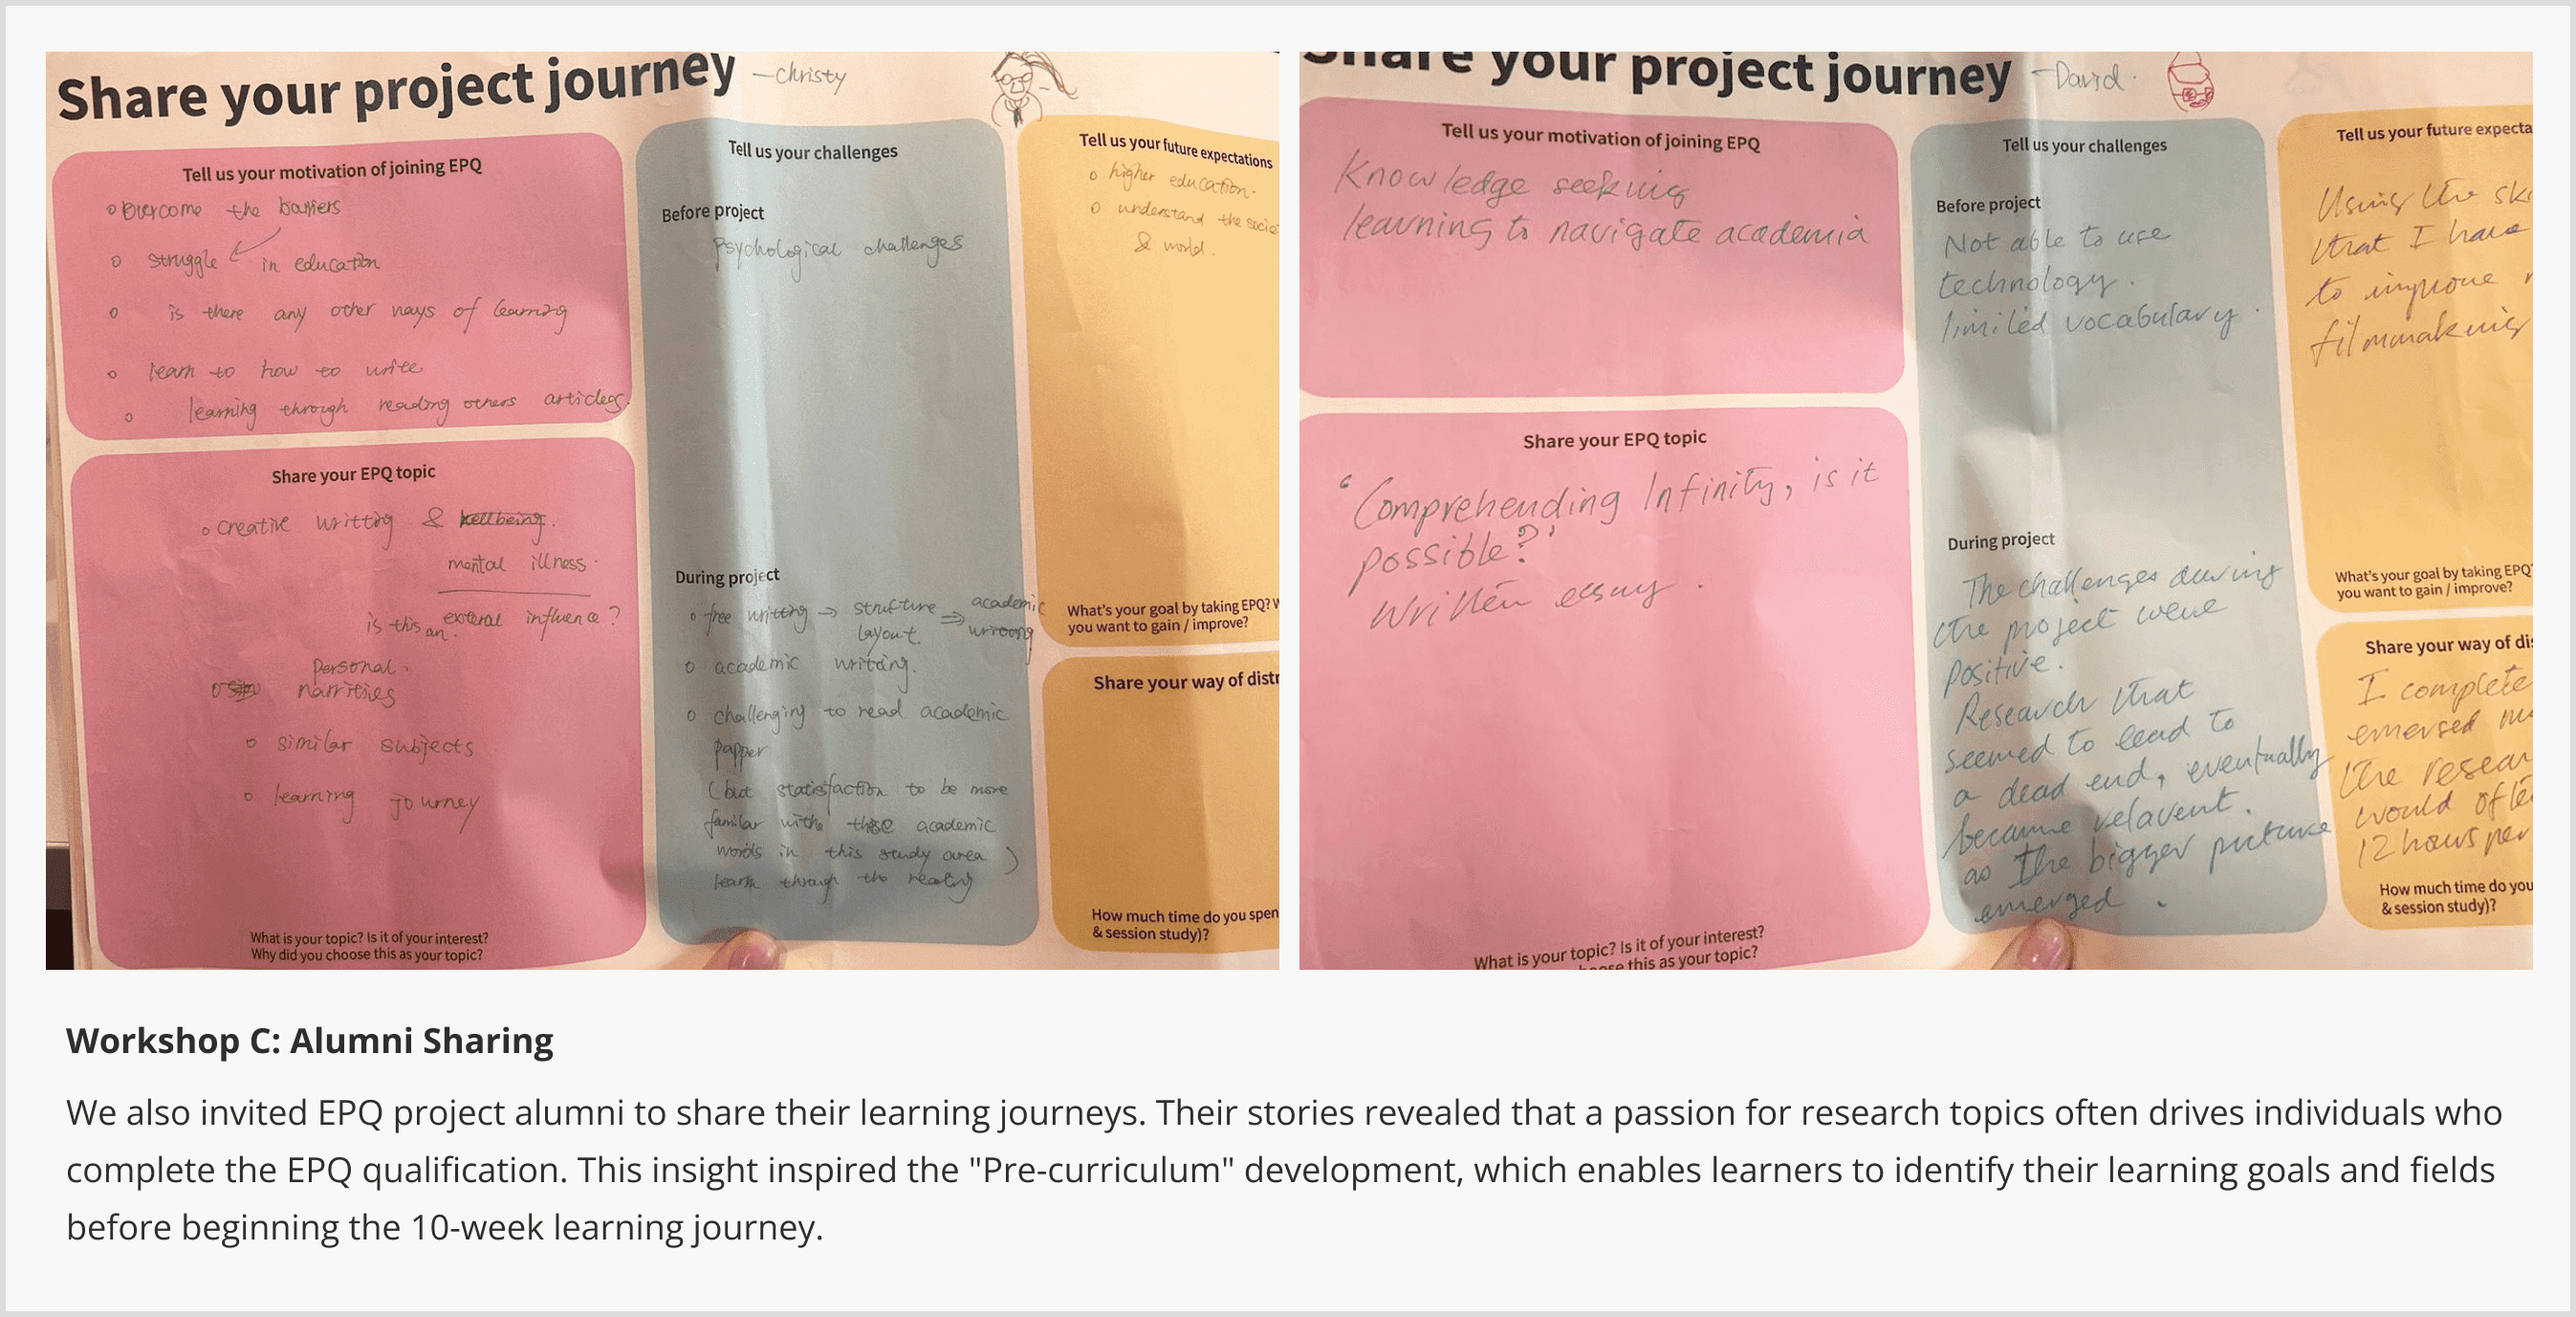 Share your project journey
—Christy
Tell us your motivation of joining EPQ
Overcome the barriers
struggle in education
is there any other ways of learning
learn to how to write
learning through reading others articles.
Share your EPQ topic
creative writting & wellbeing.
mental illness.
is this an exteral influence?
personal.
narrities
similar subjects
learning journey
What is your topic? Is it of your interest?
Why did you choose this as your topic?
Tell us your challenges
Before project
psychological challenges
During project
free writting → structure ⇒ academic
layout. writting
academic writing.
challenging to read academic
papper
(but statisfaction to be more
familar withe these academic
words in this study area )
learn through the reading
Tell us your future expectations
higher education.
understand the socie
& world.
What's your goal by taking EPQ? W
you want to gain / improve?
Share your way of distr
How much time do you spen
& session study)?
Share your project journey
—David.
Tell us your motivation of joining EPQ
Knowledge seeking
learning to navigate academia
Share your EPQ topic
'Comprehending Infinity, is it
possible?'
Written essay.
What is your topic? Is it of your interest?
ose this as your topic?
Tell us your challenges
Before project
Not able to use
technology.
limited vocabulary.
During project
The challenges during
the project were
positive.
Research that
seemed to lead to
a dead end, eventually
became relavent.
as the bigger picture
emerged.
Tell us your future expecta
Using the ski
that I have
to improve
filmmaking
What's your goal by taking EPQ
you want to gain / improve?
Share your way of dis
I complete
emersed
the resear
would ofte
12 hours per
How much time do you
& session study)?
Workshop C: Alumni Sharing
We also invited EPQ project alumni to share their learning journeys. Their stories revealed that a passion for research topics often drives individuals who
complete the EPQ qualification. This insight inspired the "Pre-curriculum" development, which enables learners to identify their learning goals and fields
before beginning the 10-week learning journey.